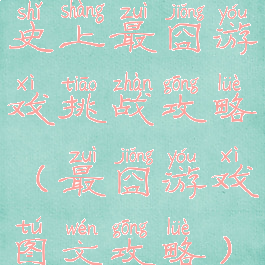 shǐ shàng zuì jiǒng yóu
史上最囧游
xì tiǎo zhàn gōng lüè
戏挑战攻略
zuì jiǒng yóu xì
（最囧游戏
tú wén gōng lüè
图文攻略）